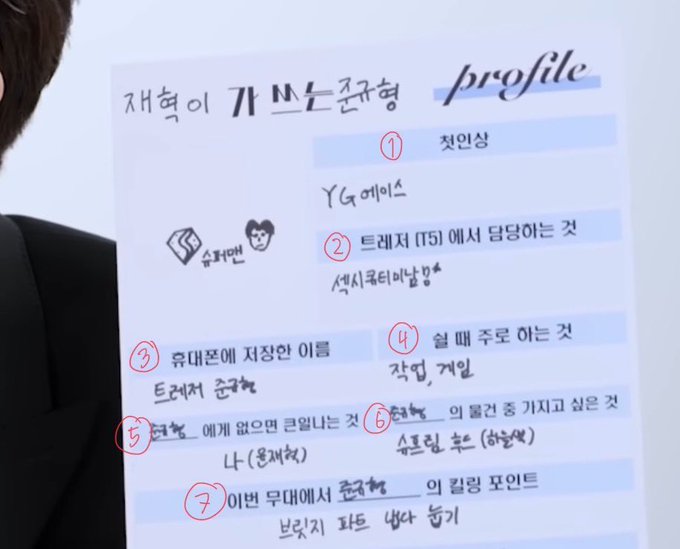 재혁이 가 쓰는 준규형
profile
① 첫인상
YG 에이스
슈퍼맨
② 트레저 [T5] 에서 담당하는 것
섹시큐티미남
③ 휴대폰에 저장한 이름
④ 쉴 때 주로 하는 것
트레저 준규형
작업, 게임
⑤ 준규형 에게 없으면 큰일나는 것
⑥ 준규형 의 물건 중 가지고 싶은 것
나 (윤재혁)
슈프림 후드 (하늘색)
⑦ 이번 무대에서 준규형 의 킬링 포인트
브릿지 파트 냅다 눕기